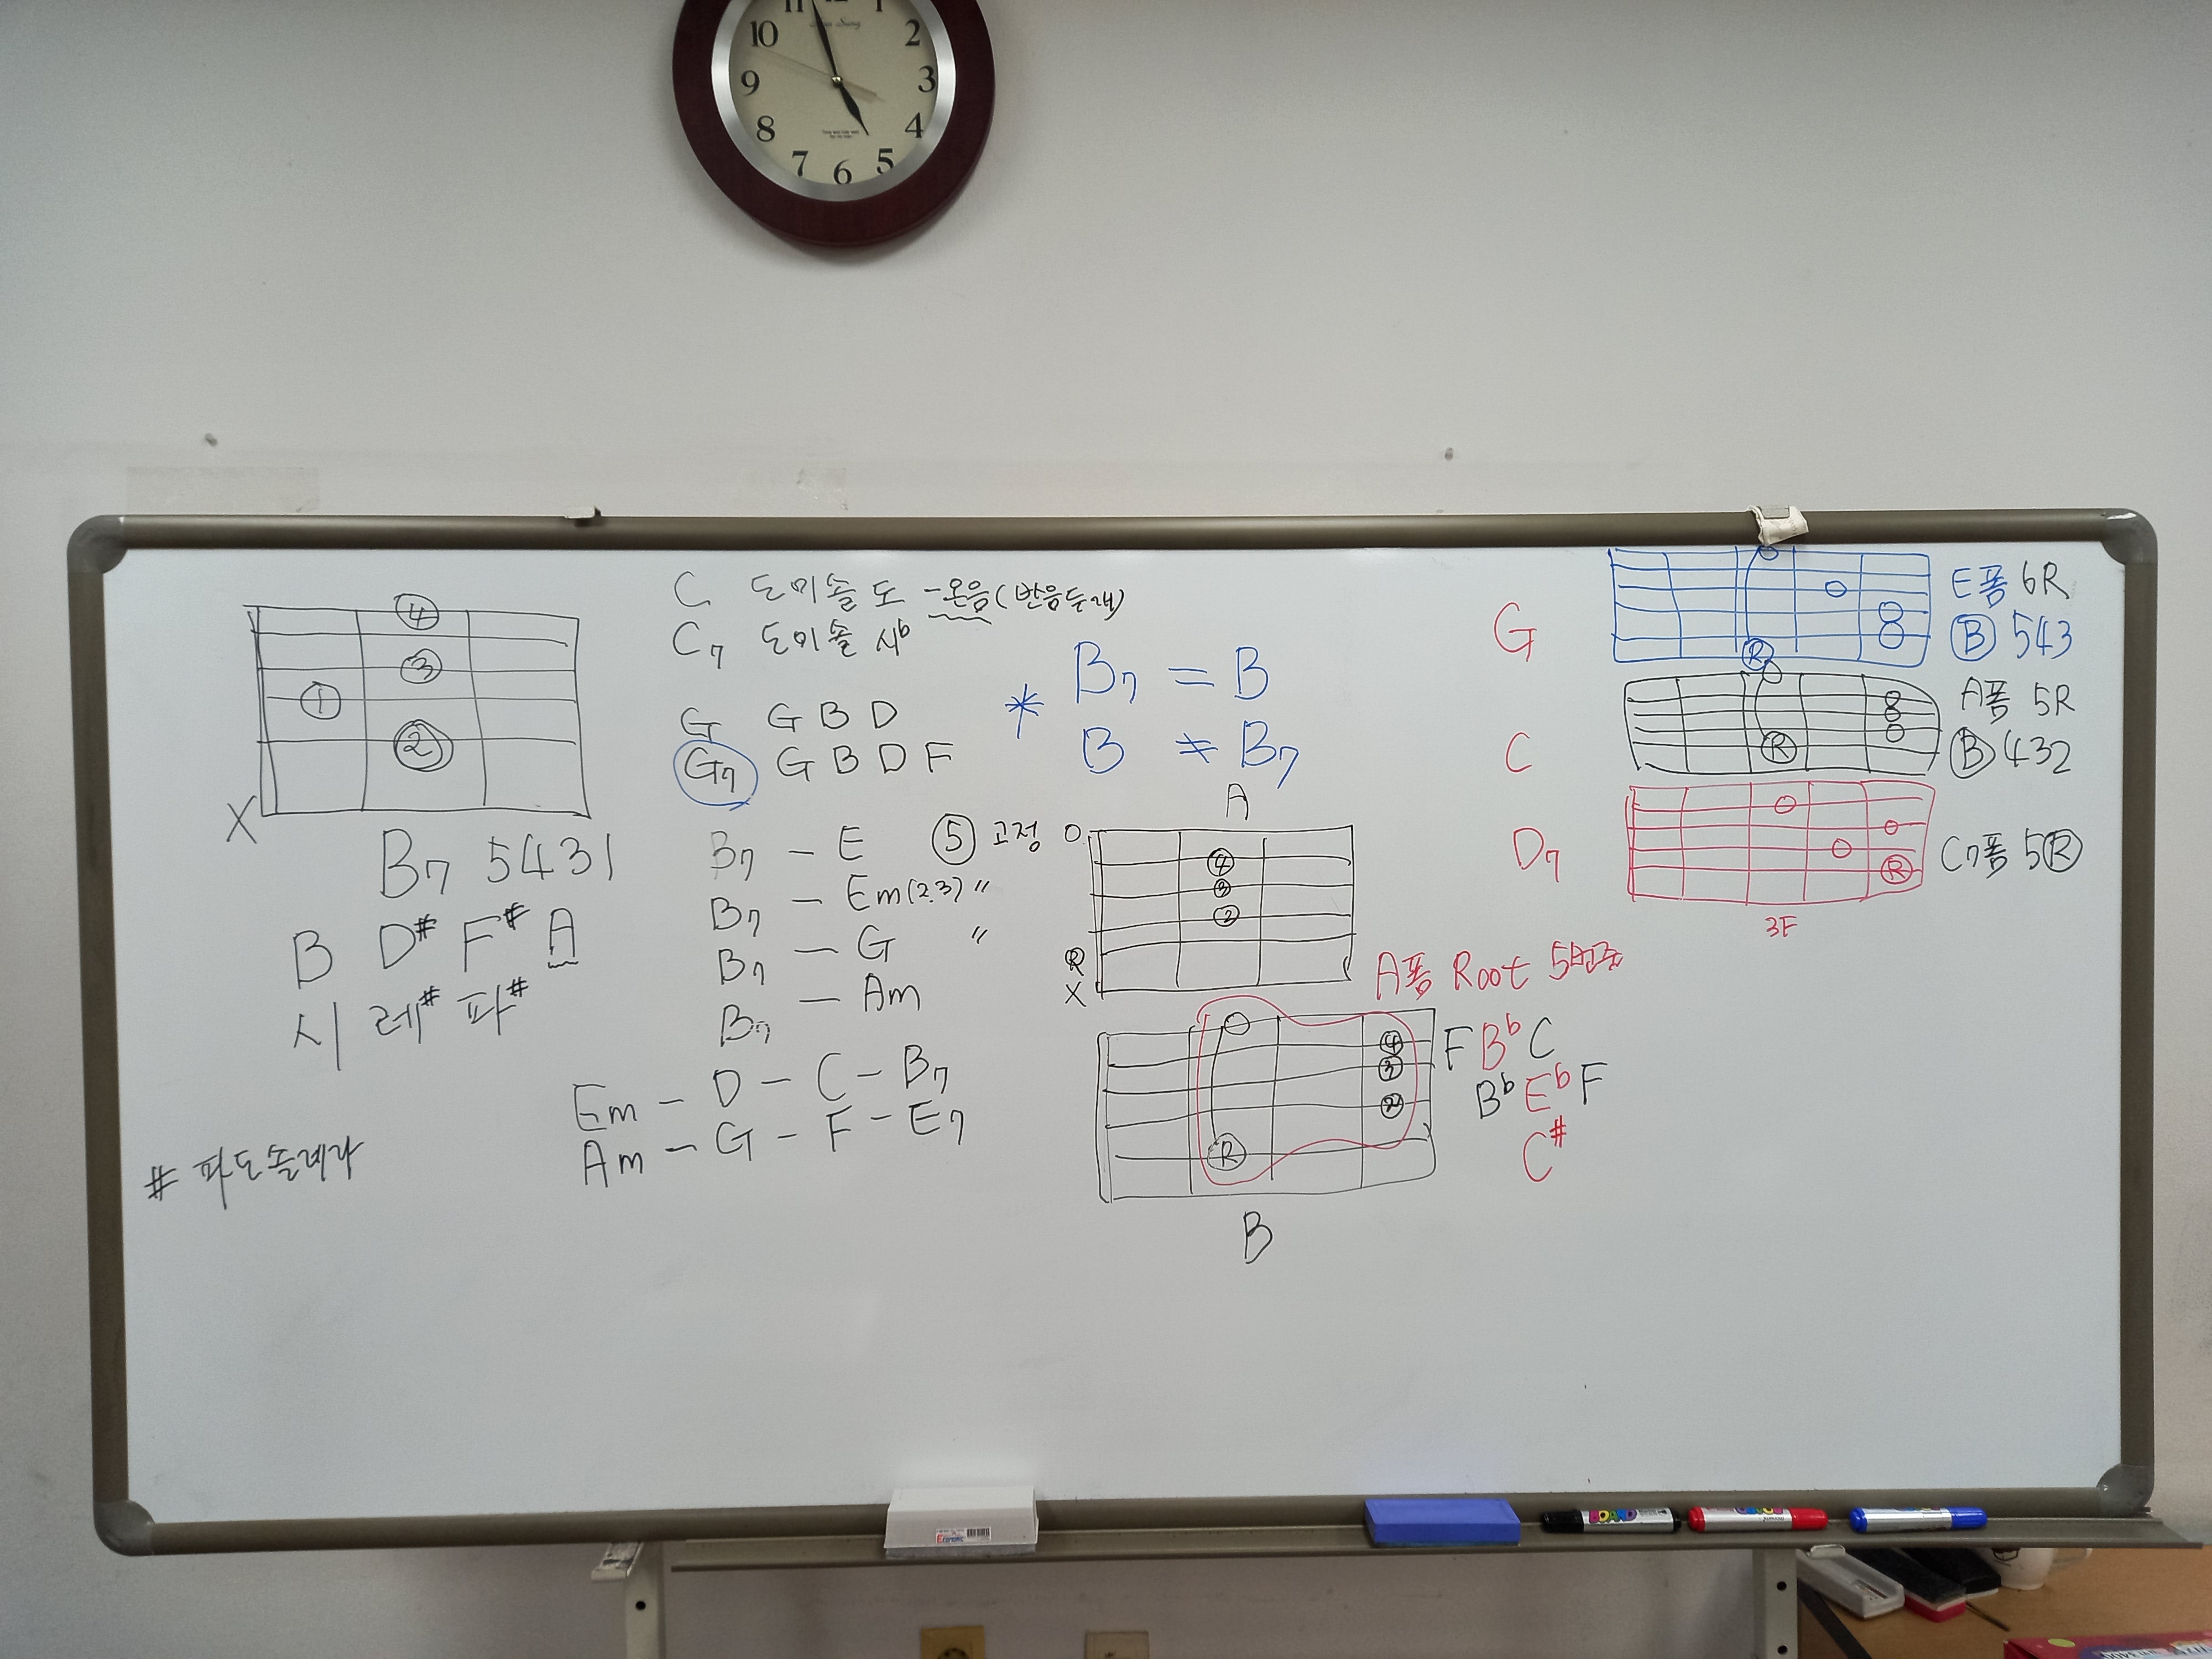 11 12 1
10 2
9 3
8 4
7 6 5
④
③
①
②
X
B7 5431
B D# F# A
시 레# 파#
# 파도솔레라
C 도미솔도 -온음(반음두개)
C7 도미솔시b
G G B D
G7 G B D F
* B7 = B
B ≠ B7
B7 - E ⑤ 고정
B7 - Em(2.3) "
B7 - G "
B7 - Am
Em - D - C - B7
Am - G - F - E7
A
O
④
③
②
R
X
A폼 Root 5번줄
④
③
②
R
B
F Bb C
Bb Eb F
C#
G
R
E폼 6R
Ⓑ 543
C
R
A폼 5R
Ⓑ 432
D7
R
C7폼 5Ⓡ
3F
BOARD